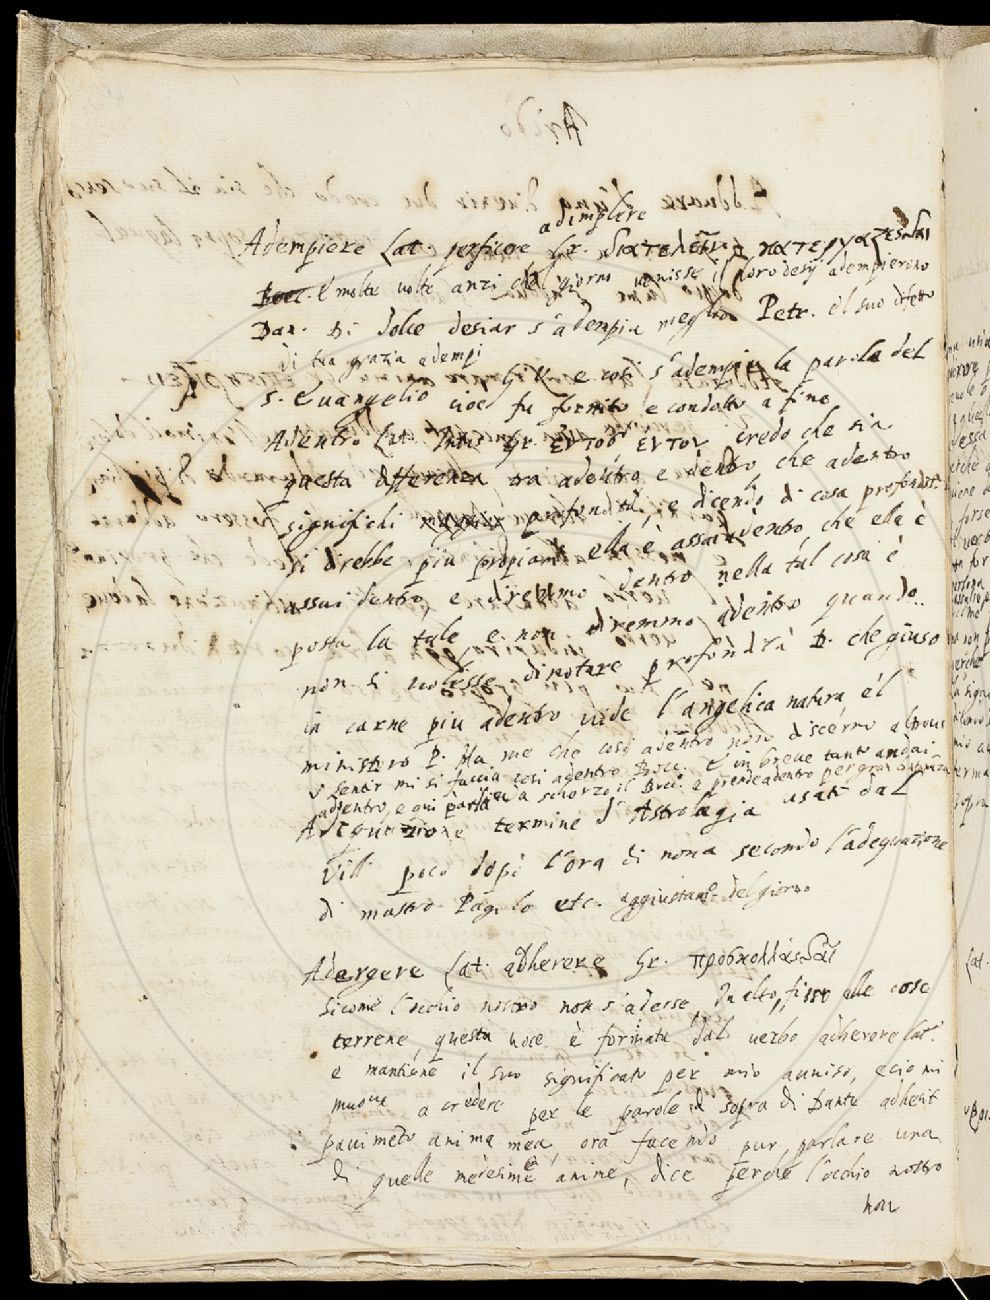 adimplere
Adempiere Lat. perficere Gr. διατελεῖν κατεργάζεσθαι
Bocc. E molte volte anzi che giorni venisse il loro desij adempierono
Dan. Di dolce desiar s'adempia meglio Petr. el suo difetto
di tua grazia adempi
G. V. e così s'adempiè la parola del
S. Euangelio cioè fu fornito e condotto a fine
Adentro Lat. Intus Gr. ἐντὸσ ἐντον Credo che sia
questa differenza tra adentro e dentro, che adentro
significhi profondità, e dicendo di cosa profonda
si direbbe più propriam. ella è assai adentro, che ella è
assai dentro e diremmo dentro nella tal cosa è
posta la tale e non diremmo adentro quando
non si volesse dinotare profondità D. che giuso
in carne piu adentro vide l'angelica natura, e'l
ministero P. Ma me che così adentro non discerno
sentir mi si faccia così adentro Bocc. E in breve tant' andai
adentro, e qui parla
Adequazione termine d'Astrologia usato dal
Vill. poco dopò l'ora di nona secondo l'adequazione
di mastro Pagolo etc. aggiustam.º del giorno
Adergere Lat. adherere Gr. προσκολλᾶσθαι
Sicome l'occhio nostro non s'aderse In alto, fisso alle cose
terrene, questa voce è formata dal verbo adherere lat.
e mantiene il suo significato per mio auuiso, e ciò mi
muoue a credere per le parole di sopra di Dante adhesit
pauimeto anima mea, ora facendo pur parlare una
di quelle medesime anime, dice perché l'occhio nostro
non